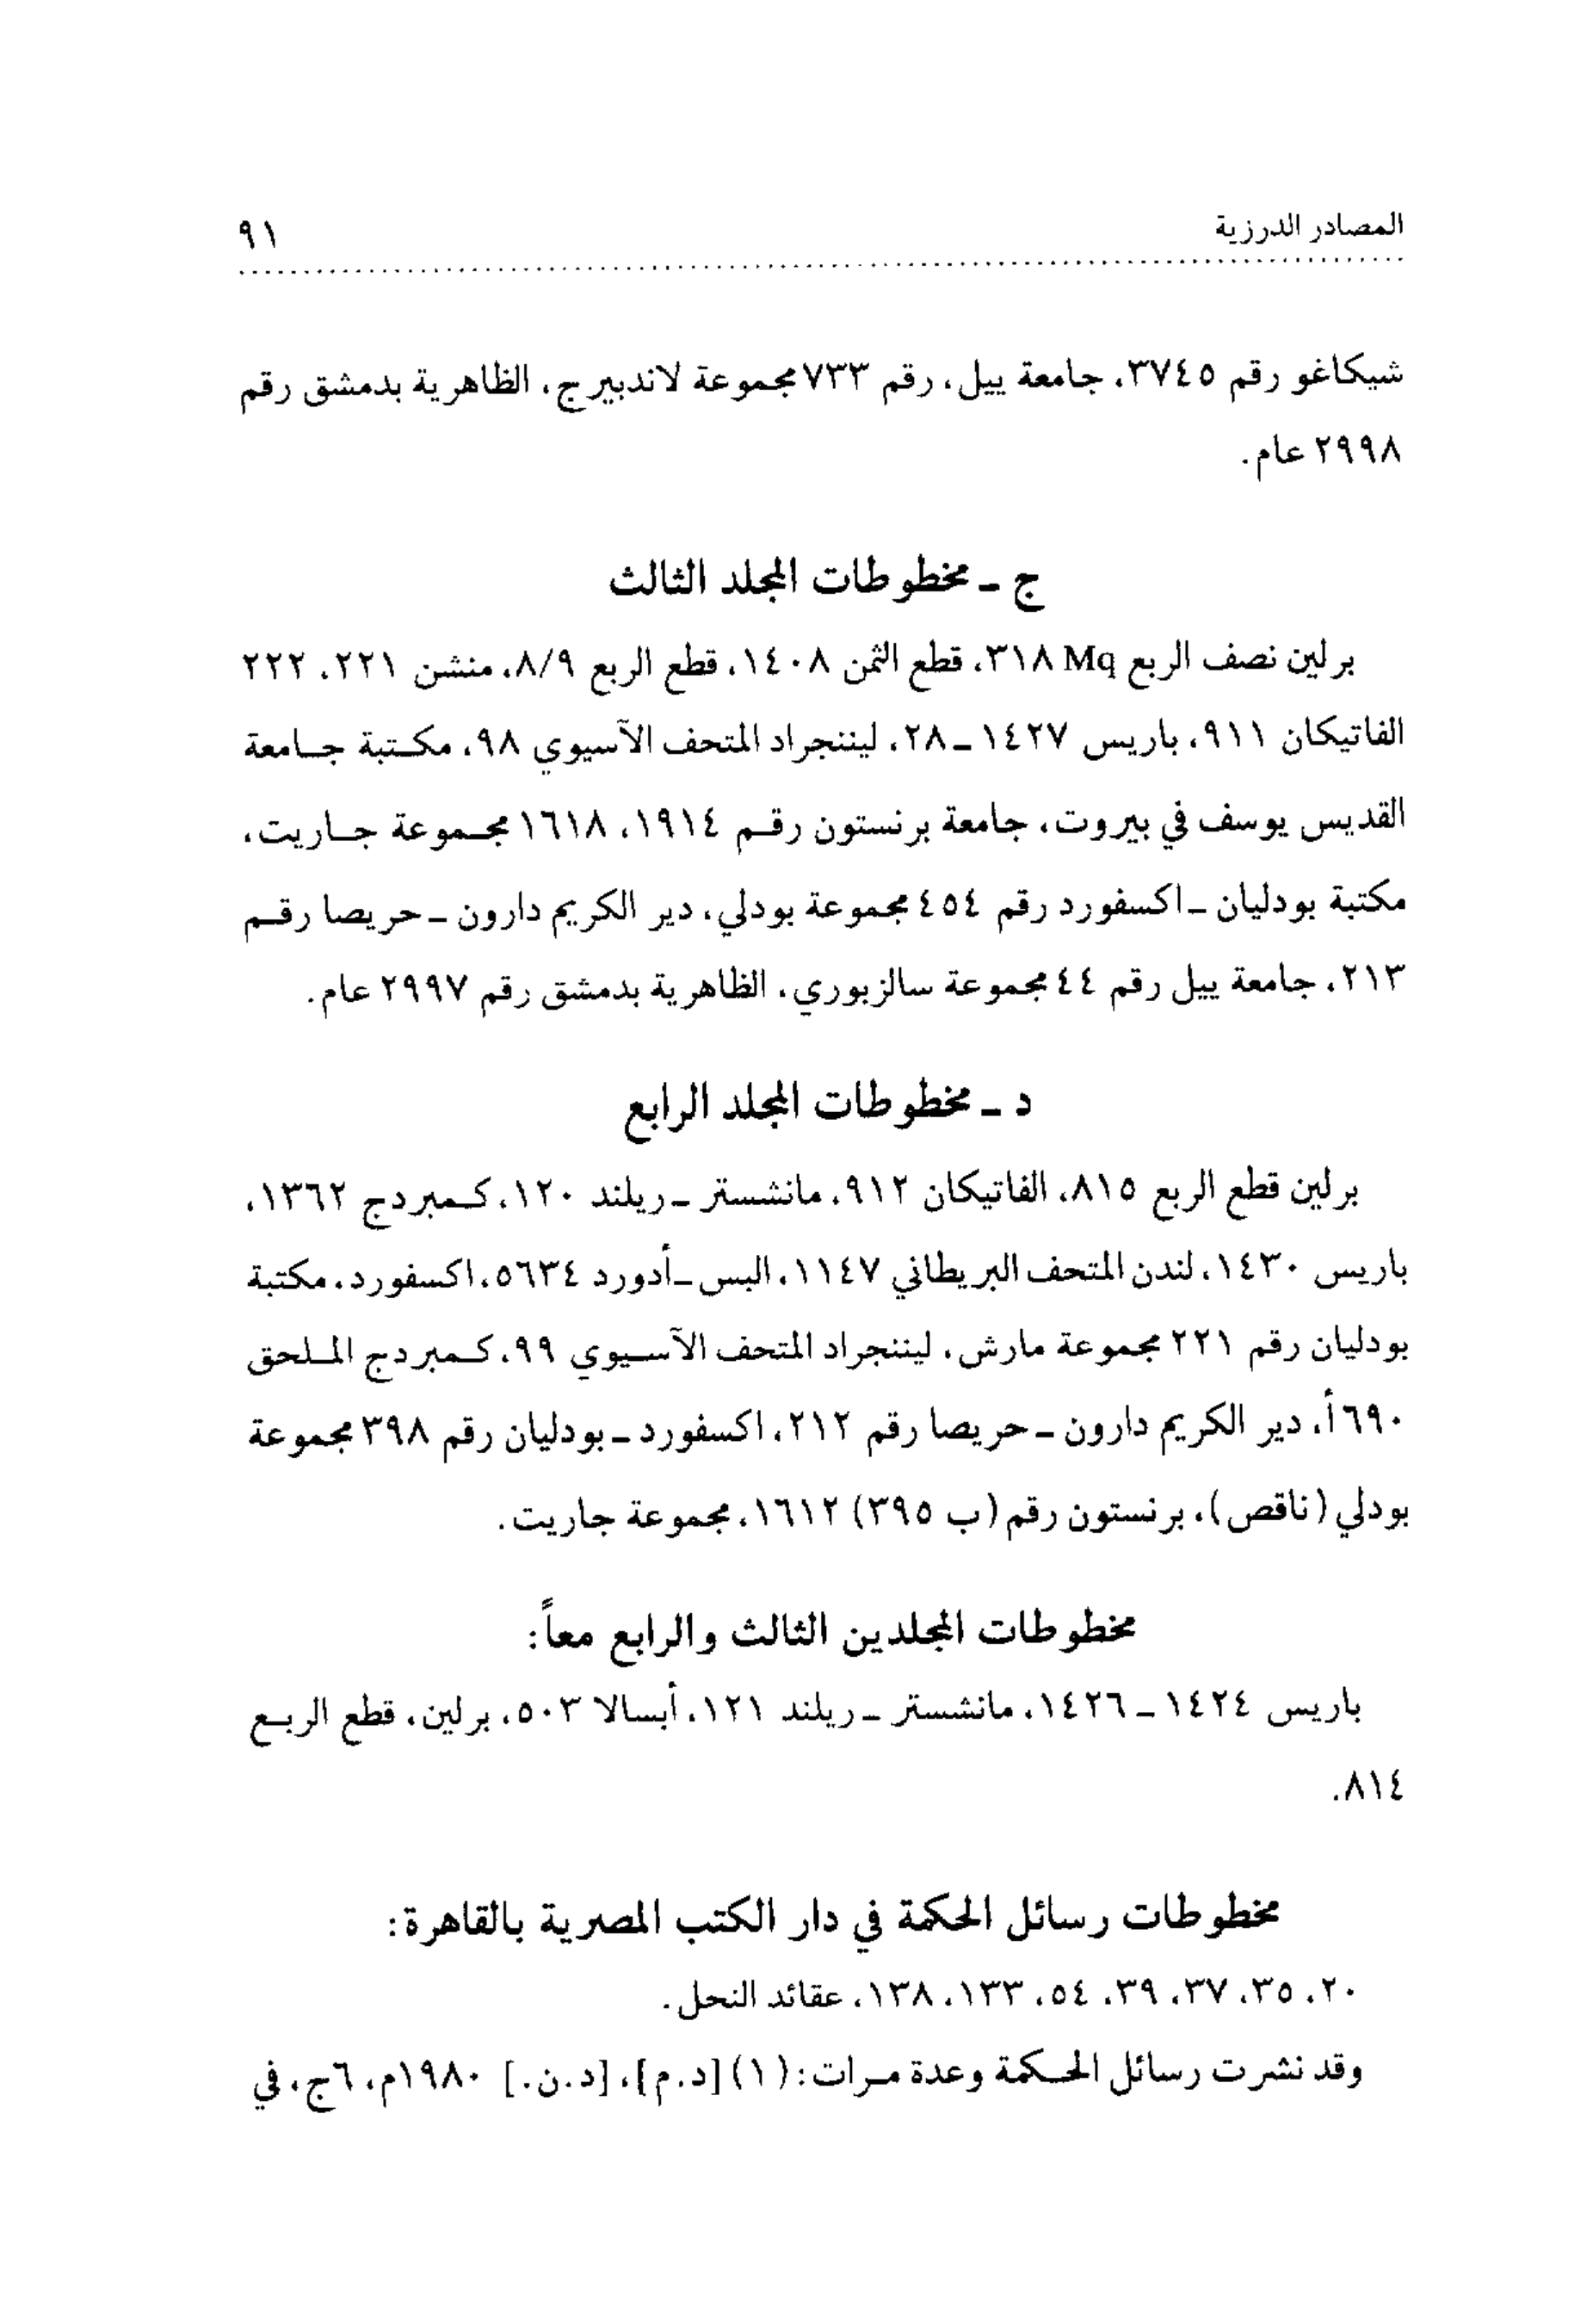 المصادر الدرزية ٩١
شيكاغو رقم ٣٧٤٥، جامعة ييل، رقم ٧٣٣ مجموعة لاندبيرج، الظاهرية بدمشق رقم
٢٩٩٨ عام.
ج - مخطوطات المجلد الثالث
برلين نصف الربع Mq ٣١٨، قطع الثمن ١٤٠٨، قطع الربع ٨/٩، منشن ٢٢١، ٢٢٢
الفاتيكان ٩١١، باريس ١٤٢٧ - ٢٨، ليننجراد المتحف الآسيوي ٩٨، مكتبة جامعة
القديس يوسف في بيروت، جامعة برنستون رقم ١٩١٤، ١٦١٨ مجموعة جاريت،
مكتبة بودليان - اكسفورد رقم ٤٥٤ مجموعة بودلي، دير الكريم دارون - حريصا رقم
٢١٣، جامعة ييل رقم ٤٤ مجموعة سالزبوري، الظاهرية بدمشق رقم ٢٩٩٧ عام.
د - مخطوطات المجلد الرابع
برلين قطع الربع ٨١٥، الفاتيكان ٩١٢، مانشستر - ريلند ١٢٠، كمبردج ١٣٦٢،
باريس ١٤٣٠، لندن المتحف البريطاني ١١٤٧، اليس - أدورد ٥٦٣٤، اكسفورد، مكتبة
بودليان رقم ٢٢١ مجموعة مارش، ليننجراد المتحف الآسيوي ٩٩، كمبردج الملحق
٦٩٠أ، دير الكريم دارون - حريصا رقم ٢١٢، اكسفورد - بودليان رقم ٣٩٨ مجموعة
بودلي (ناقص)، برنستون رقم (ب ٣٩٥) ١٦١٢، مجموعة جاريت.
مخطوطات المجلدين الثالث والرابع معاً:
باريس ١٤٢٤ - ١٤٢٦، مانشستر - ريلند ١٢١، أبسالا ٥٠٣، برلين، قطع الربع
٨١٤.
مخطوطات رسائل الحكمة في دار الكتب المصرية بالقاهرة:
٢٠، ٣٥، ٣٧، ٣٩، ٥٤، ١٣٣، ١٣٨، عقائد النحل.
وقد نشرت رسائل الحكمة وعدة مرات: (١) [د.م]، [د.ن.] ١٩٨٠م، ٦ج، في